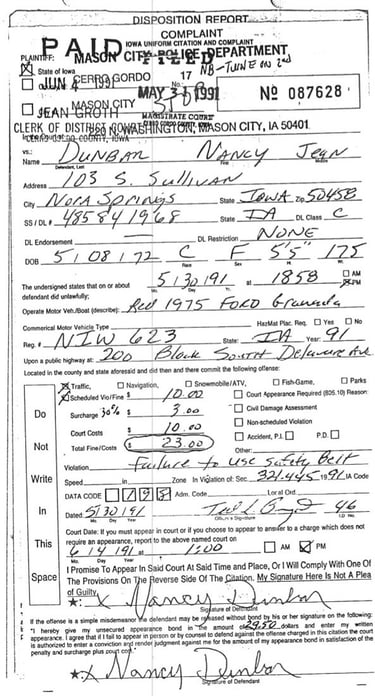 DISPOSITION REPORT
COMPLAINT
IOWA UNIFORM CITATION AND COMPLAINT
PAID MASON CITY POLICE DEPARTMENT
PLAINTIFF:
State of Iowa
NB-TUNE ON 2nd
CERRO GORDO
17
JUN 4 1991
MAY 31 1991
No. 087628
MASON CITY
JEAN GROTH
MAGISTRATE COURT
CLERK OF DISTRICT COURT
WASHINGTON, MASON CITY, IA 50401
vs.:
Name Dunbar Nancy Jean
Defendant, Last First Middle
Address 103 S. Sullivan
City Nora Springs State Iowa Zip 50458
SS / DL # 485841968 State IA DL Class C
DL Endorsement DL Restriction NONE
DOB 5/08/72 C F 5'5" 175
Race Sex Ht. Wt.
The undersigned states that on or about 5/30/91 at 1858 AM PM
defendant did unlawfully: Mo. Day Year
Operate Motor Veh/Boat (describe): Red 1975 Ford Granada
Commerical Motor Vehicle Type HazMat Plac. Req. Yes No
Reg. # NIW 623 State: IA Year: 91
Upon a public highway at: 200 Block South Delaware Ave
Located in the county and state aforesaid and did then and there commit the following offense:
Traffic, Navigation, Snowmobile/ATV, Fish-Game, Parks
Scheduled Vio/Fine $ 10.00 Court Appearance Required (805.10) Reason:
Do Surcharge 30% $ 3.00 Civil Damage Assessment
Court Costs $ 10.00 Non-scheduled Violation
Not Total Fine/Costs $ 23.00 Accident, P.I. P.D.
Violation Failure to use Safety Belt
Write Speed in Zone in Violation of: Sec. 321.445 1991 IA Code
DATA CODE Adm. Code Local Ord.
In Dated: 5/30/91 46
Mo. Day Year Officer's Signature I.D. No.
Court Date: If you must appear in court or if you choose to appear to answer to a charge which does not
This require an appearance, report to the above named court on
6/14/91 at 1:00 AM PM
Mo. Day Year
Space I Promise To Appear In Said Court At Said Time and Place, Or I Will Comply With One Of
The Provisions On The Reverse Side Of The Citation. My Signature Here Is Not A Plea
of Guilty.
X Nancy Dunbar
Signature of Defendant
If the offense is a simple misdemeanor the defendant may be released without bond by his or her signature on the following:
"I hereby give my unsecured appearance bond in the amount of 29.50 dollars and enter my written
appearance. I agree that if I fail to appear in person or by counsel to defend against the offense charged in this citation the court
is authorized to enter a conviction and render judgment against me for the amount of my appearance bond in satisfaction of the
penalty and surcharge plus court cost."
X Nancy Dunbar
Signature of Defendant